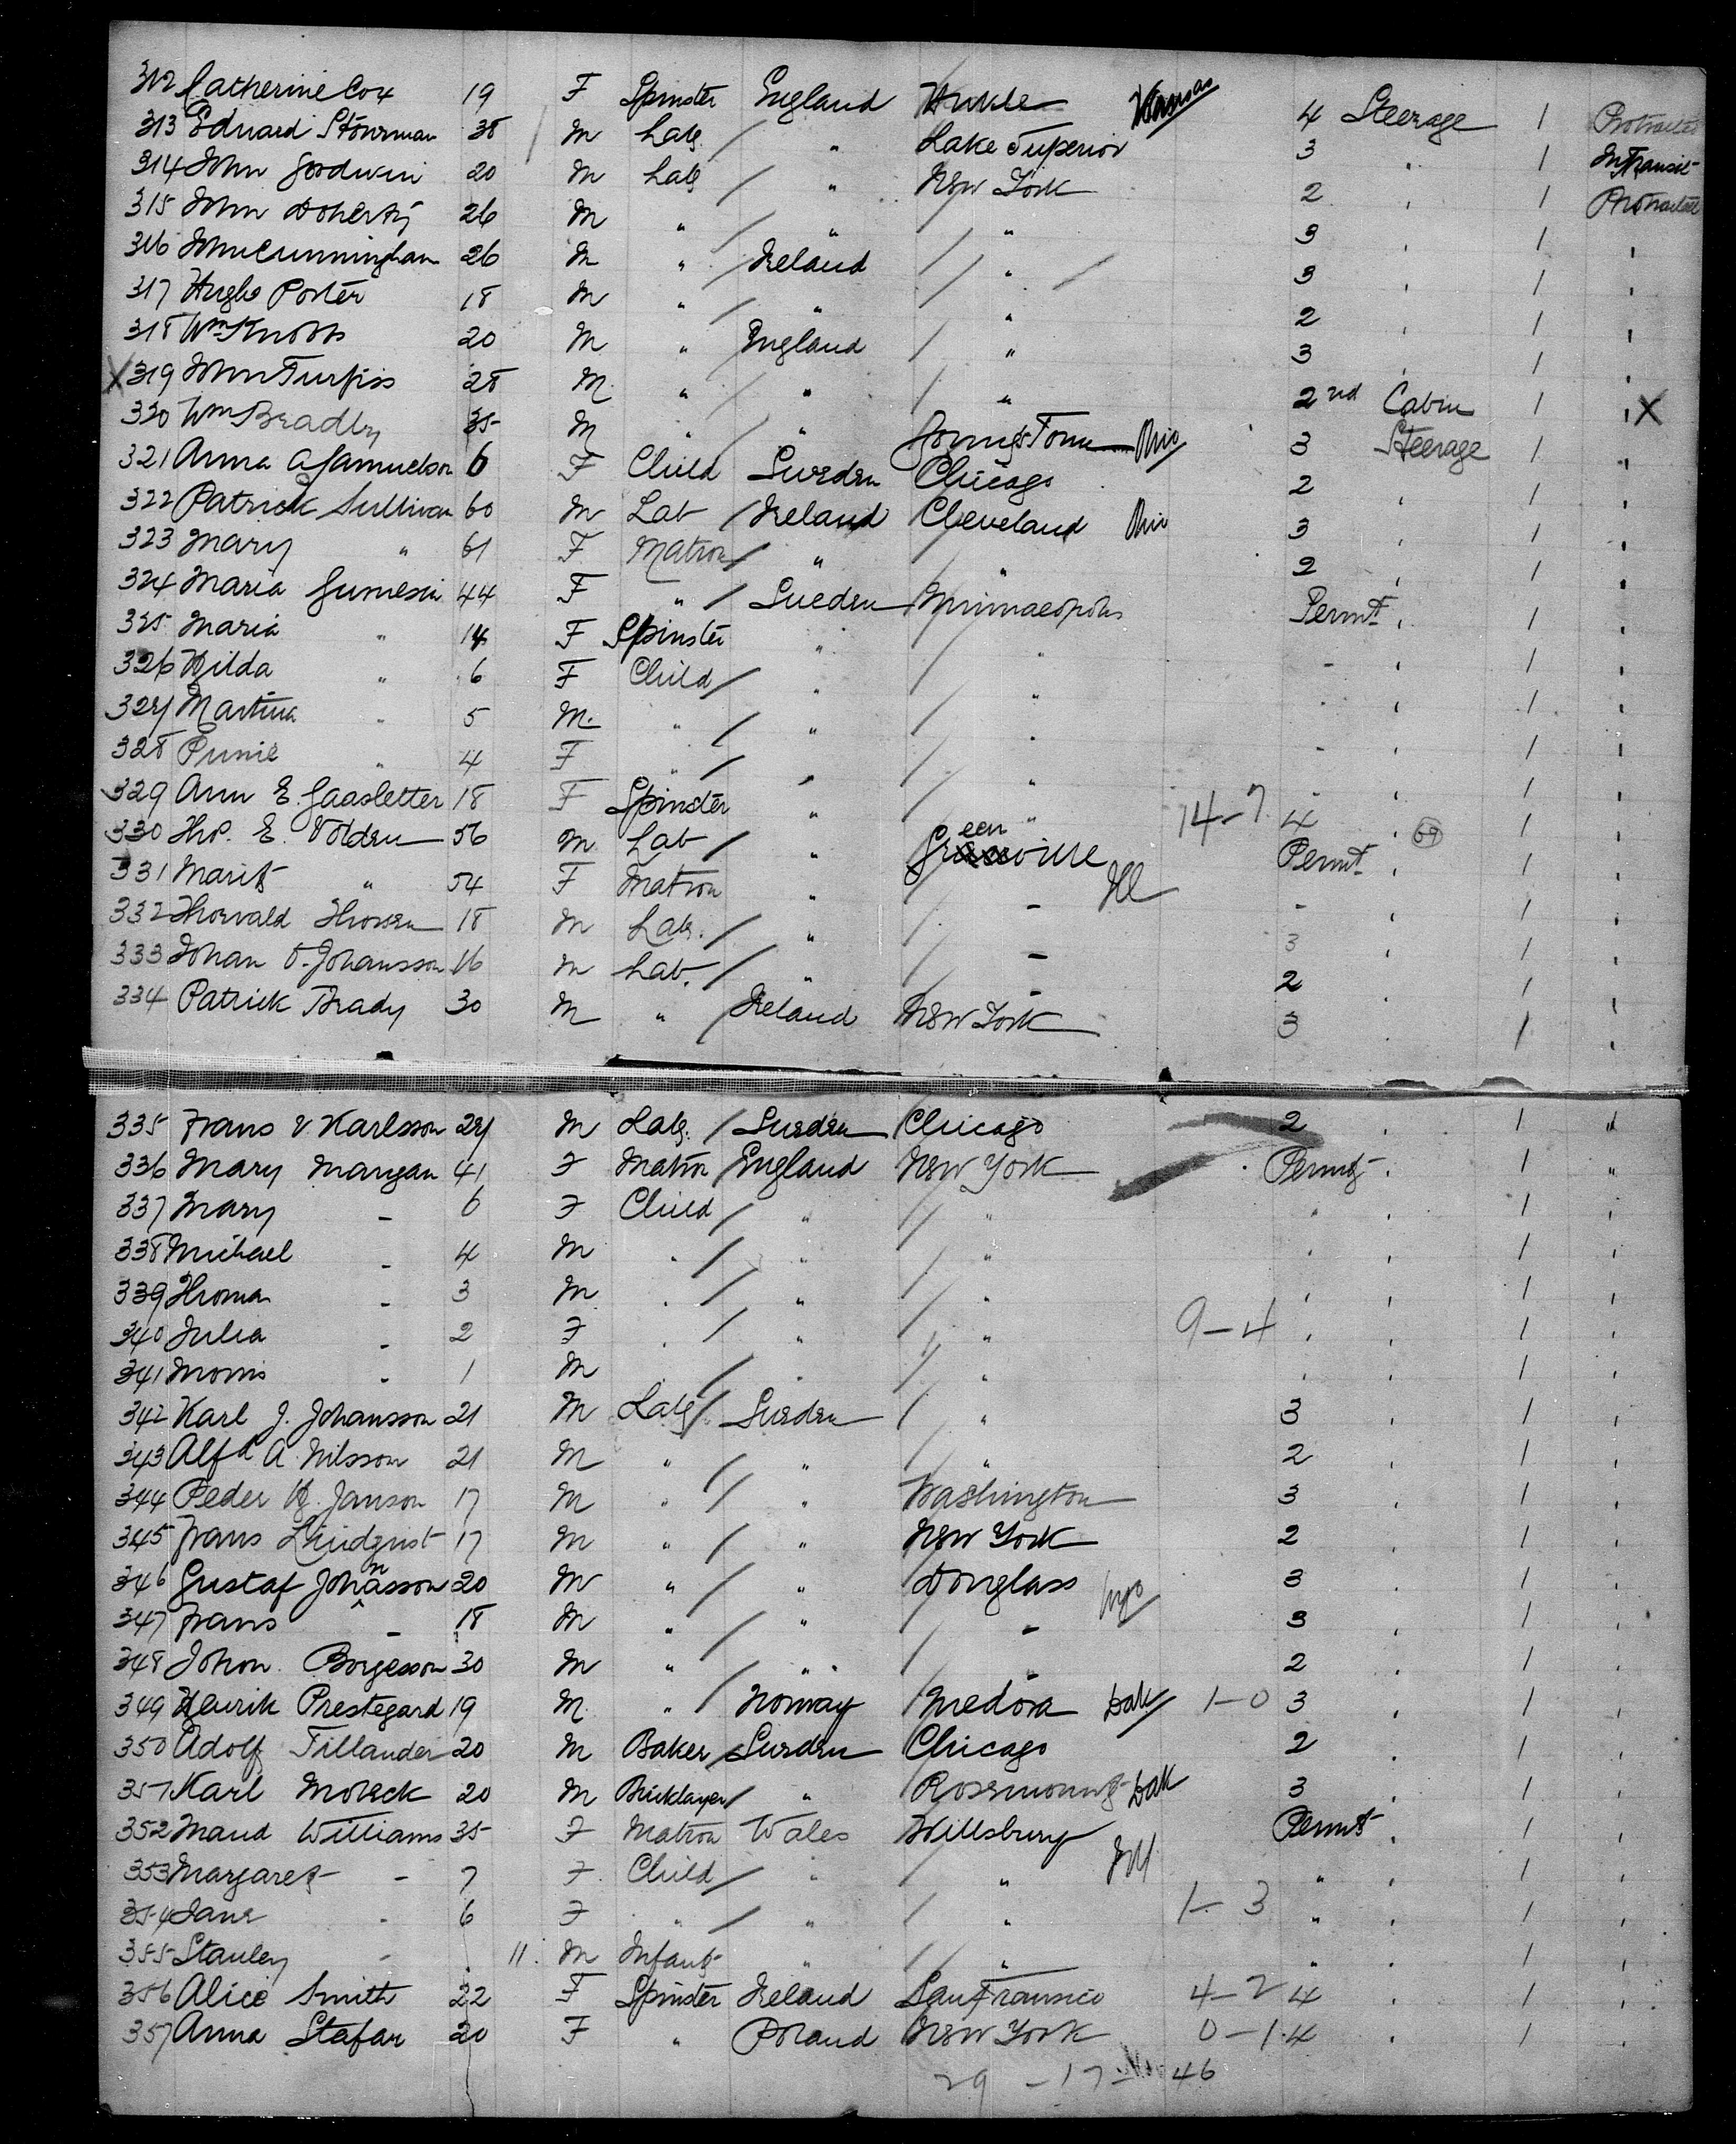 312 Catherine Cox 19 F Spinster England Kansas 4 Steerage 1 Protracted
313 Eduard 38 / M Lab. / " Lake Superior 3 " 1 In Transit
314 John Goodwin 20 M Lab / " New York 2 " 1 Protracted
315 John Doherty 26 M " / " / " 3 " 1 "
316 John Cunningham 26 M " / Ireland / " / 3 " 1 "
317 Hugh Porter 18 M " / " / " 2 " 1 "
318 Wm Knobbs 20 M " / England / " 3 " 1 "
X 319 John Furfiss 28 M " / " / " 2nd Cabin 1 " X
320 Wm Bradley 35 M " / " Youngs Town Ohio 3 Steerage 1 "
321 Anna A Samuelson 6 F Child Sweden Chicago 2 " 1 "
322 Patrick Sullivan 60 M Lab / Ireland Cleveland Ohio 3 " 1 "
323 Mary " 61 F Matron / " " 2 " 1 "
324 Maria 44 F " / Sweden Minneapolis Permt " 1 "
325 Maria " 14 F Spinster " / " - " 1 "
326 Hilda " 6 F Child / " / " " " 1 "
327 Martina " 5 M " / " / " - " 1 "
328 " 4 F " / " / " " " 1 "
329 Ann E. Gaasletter 18 F Spinster " / " 14-7 4 " 1 "
330 E. Volden 56 M Lab / " Greenville Permt " 1 "
331 Marit " 54 F Matron " / - Ill - " 1 "
332 Thorvald 18 M Lab. / " / - 3 " 1 "
333 Johan O. Johansson 16 M Lab. / " / - 2 " 1 "
334 Patrick Brady 30 M " / Ireland New York 3 " 1 "
335 Frans V Karlsson 27 M Lab. / Sweden Chicago 2 " 1 "
336 Mary Mangan 41 F Matron England New York Permt " 1 "
337 Mary - 6 F Child / " / " " " 1 "
338 Michael - 4 M " / " / " " " 1 "
339 Thomas - 3 M " / " / " " " 1 "
340 Julia - 2 F " / " / " 9-4 " " 1 "
341 Morris - 1 M " / " / " " " 1 "
342 Karl J. Johansson 21 M Lab / Sweden / " 3 " 1 "
343 Alfd A. Nilsson 21 M " / " / " 2 " 1 "
344 Peder H. Janson 17 M " / " Washington 3 " 1 "
345 Frans Lindqvist 17 M " / " New York 2 " 1 "
346 Gustaf Johansson 20 M " / " Douglass Wyo 3 " 1 "
347 Frans - 18 M " / " / - 3 " 1 "
348 Johan Borgesson 30 M " / " / - 2 " 1 "
349 Henrik Prestegard 19 M " / Norway / Medora Dak 1-0 3 " 1 "
350 Adolf Tillander 20 M Baker / Sweden Chicago 2 " 1 "
351 Karl 20 M Bricklayer / " Rosemount Dak 3 " 1 "
352 Maud Williams 35 F Matron Wales Willsburg Permt " 1 "
353 Margaret - 7 F Child / " / " " " 1 "
354 Jane - 6 F " / " / " 1-3 " " 1 "
355 Stanley - 11 M Infant " / " " " 1 "
356 Alice Smith 22 F Spinster Ireland San Fransico 4-2 4 " 1 "
357 Anna Stafar 20 F " Poland New York 0-1 4 " 1 "
29 - 17 - 46